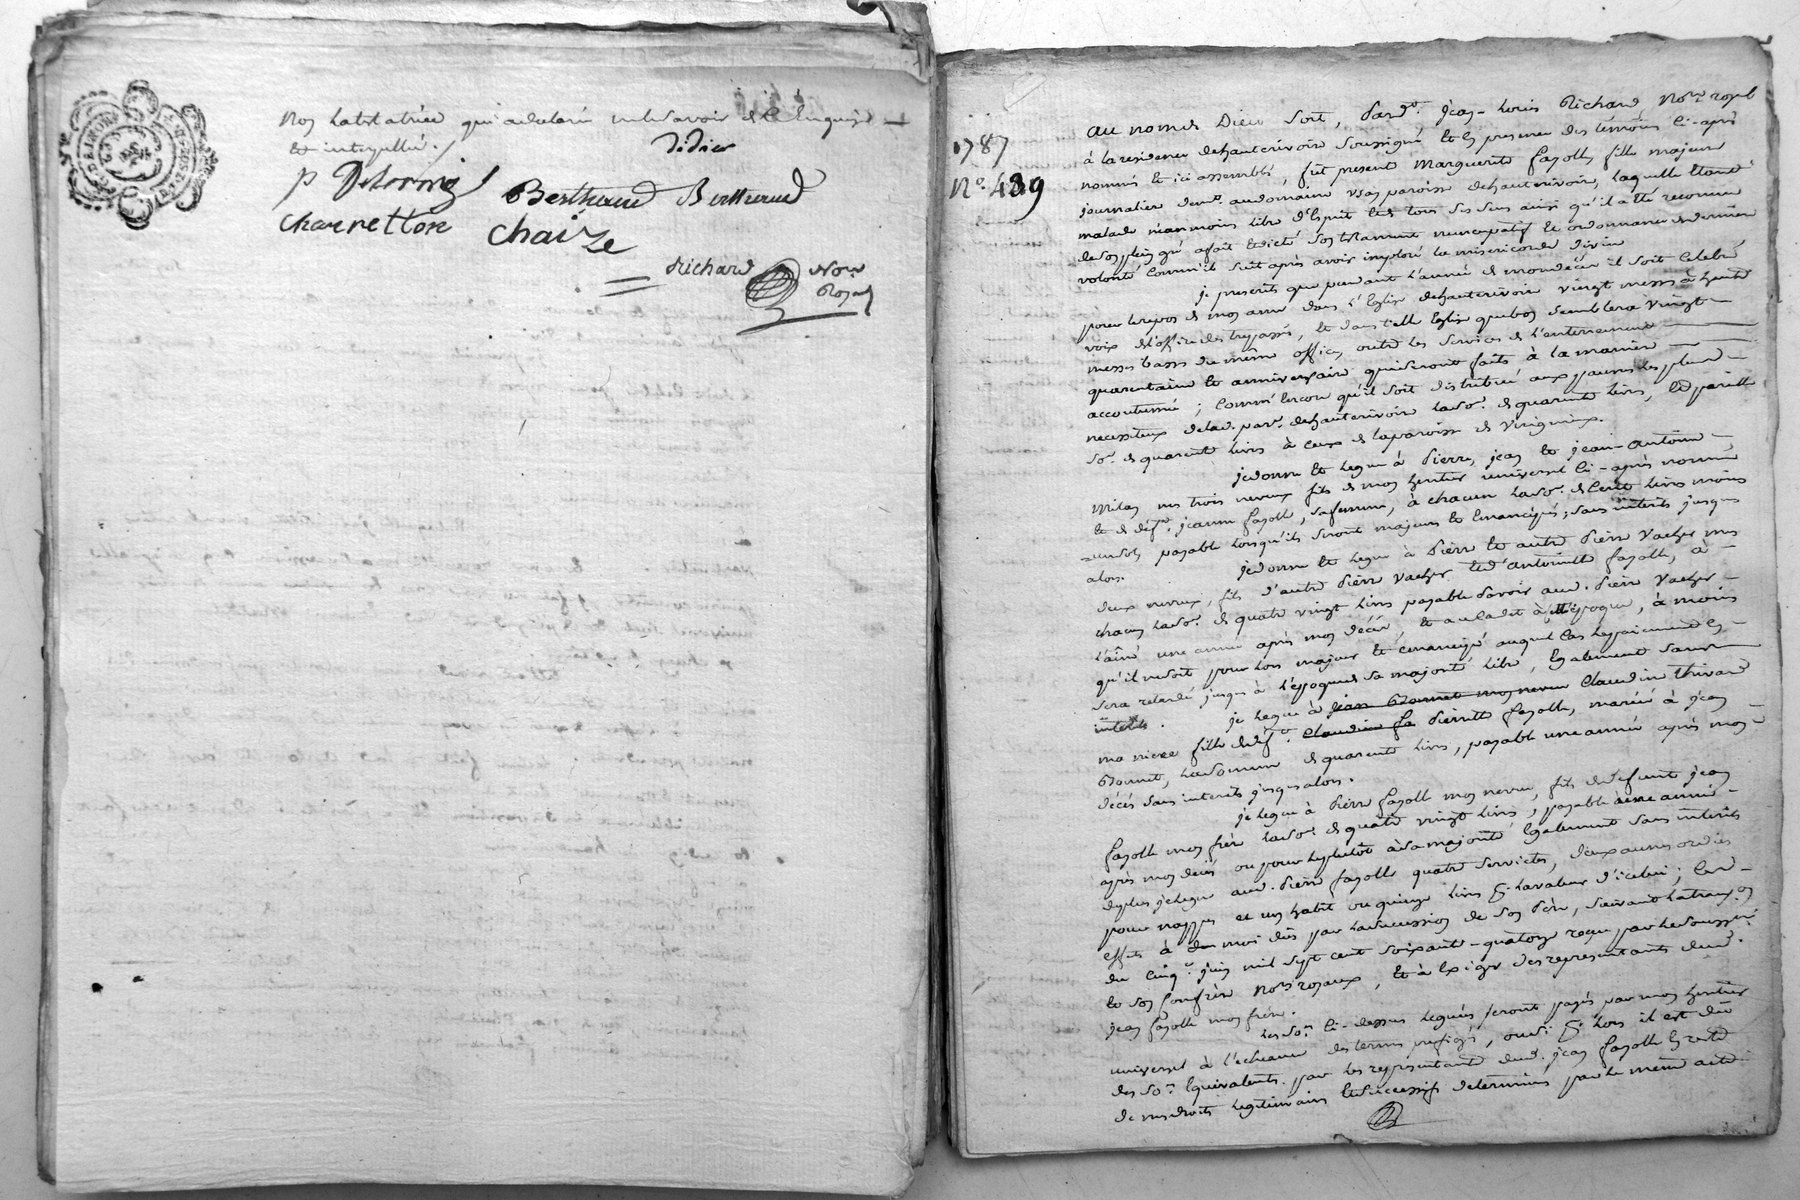 non la testatrice qui a declaré ne le savoir de ce enquise
et interpellée.
didier
P Delorme
Berthaud Berthaud
Charretton Chaize
Richard Nore
Royal
1787
No. 489
au nom de Dieu soit, pard.t jean-Louis Richard Nore royal
à la residence d'hauterivoire soussigné et en presence des temoins ci-après
nommés et ici assemblés, fut presente Marguerite fayolle fille majeure
journaliere demt. au domaine paroisse d'hauterivoire, laquelle étant
malade néanmoins libre d'esprit et de tous ses sens ainsi qu'il a été reconnu
de son plein gré a fait et dicté son testament nuncupatif et ordonnance de derniere
volonté comm'il suit après avoir imploré la misericorde divine
je prescrits que pendant l'année de mon décés il soit celebré
pour le repos de mon ame dans l'Eglise d'hauterivoire vingt messes à haute
voix de l'office des trepassés, et dans telle Eglise que bon semblera vingt
messes basses du même office, outre les services de l'enterrement
quarantaine et anniversaire qui seront faits à la maniere
accoutumée ; comm'encore qu'il soit distribué aux pauvres les plus
necessiteux de lad. par. d'hauterivoire la so.e de quarante livres, et pareille
so.e de quarante livres à ceux de la paroisse de Virigneux.
je donne et legue à Pierre, jean et jean-antoine
mes trois neveux fils de mon heritier universel ci-après nommé
et de déf.te jeanne fayolle, sa femme, à chacun la so.e de cent livres moins
un sol, payable lorsqu'ils seront majeurs et emancipés, sans interets jusques
alors.
je donne et legue à Pierre et autre Pierre Vacher mes
deux neveux, fils d'autre Pierre Vacher et d'antoinette fayolle, à
chacun la so.e de quatre vingt livres payable savoir aud. Pierre Vacher
l'aîné une année après mon décés, et au cadet à cette epoque, à moins
qu'il ne soit pour lors majeur et emancipé auquel cas le payement en
sera retardé jusqu'à l'epoque de sa majorité libre, egalement sans
interets.
je legue à jean Bonnet mon neveu Claudine thivard
ma niece fille de déf.te Claudine fa Pierrette fayolle, mariée à jean
Bonnet, la somme de quarante livres, payable une année après mon
décés sans interets jusqu'alors.
je legue à Pierre fayolle mon neveu, fils de defunt jean
fayolle mon frère la so.e de quatre vingt livres, payable une année
après mon decés ou pour le plutôt à sa majorité egalement sans interets
de plus je legue aud. Pierre fayolle quatre serviettes, deux aunes
pour nappes et un habit ou quinze livres pr. la valeur d'icelui ; ces
effets à moi dûs par la succession de son Père, suivant la transaction
du cinq juin mil sept cent soixante-quatorze reçue par le soussigné
et son confrère Nores royaux, et à exiger des representants dud.
jean fayolle mon frère.
Les so.es ci-dessus leguées seront payés par mon heritier
universel à l'echeance des termes prefigés,
des so.es equivalents par les representants dud. jean fayolle en reste
de mes droits legitimaires et successifs determinés par le même acte